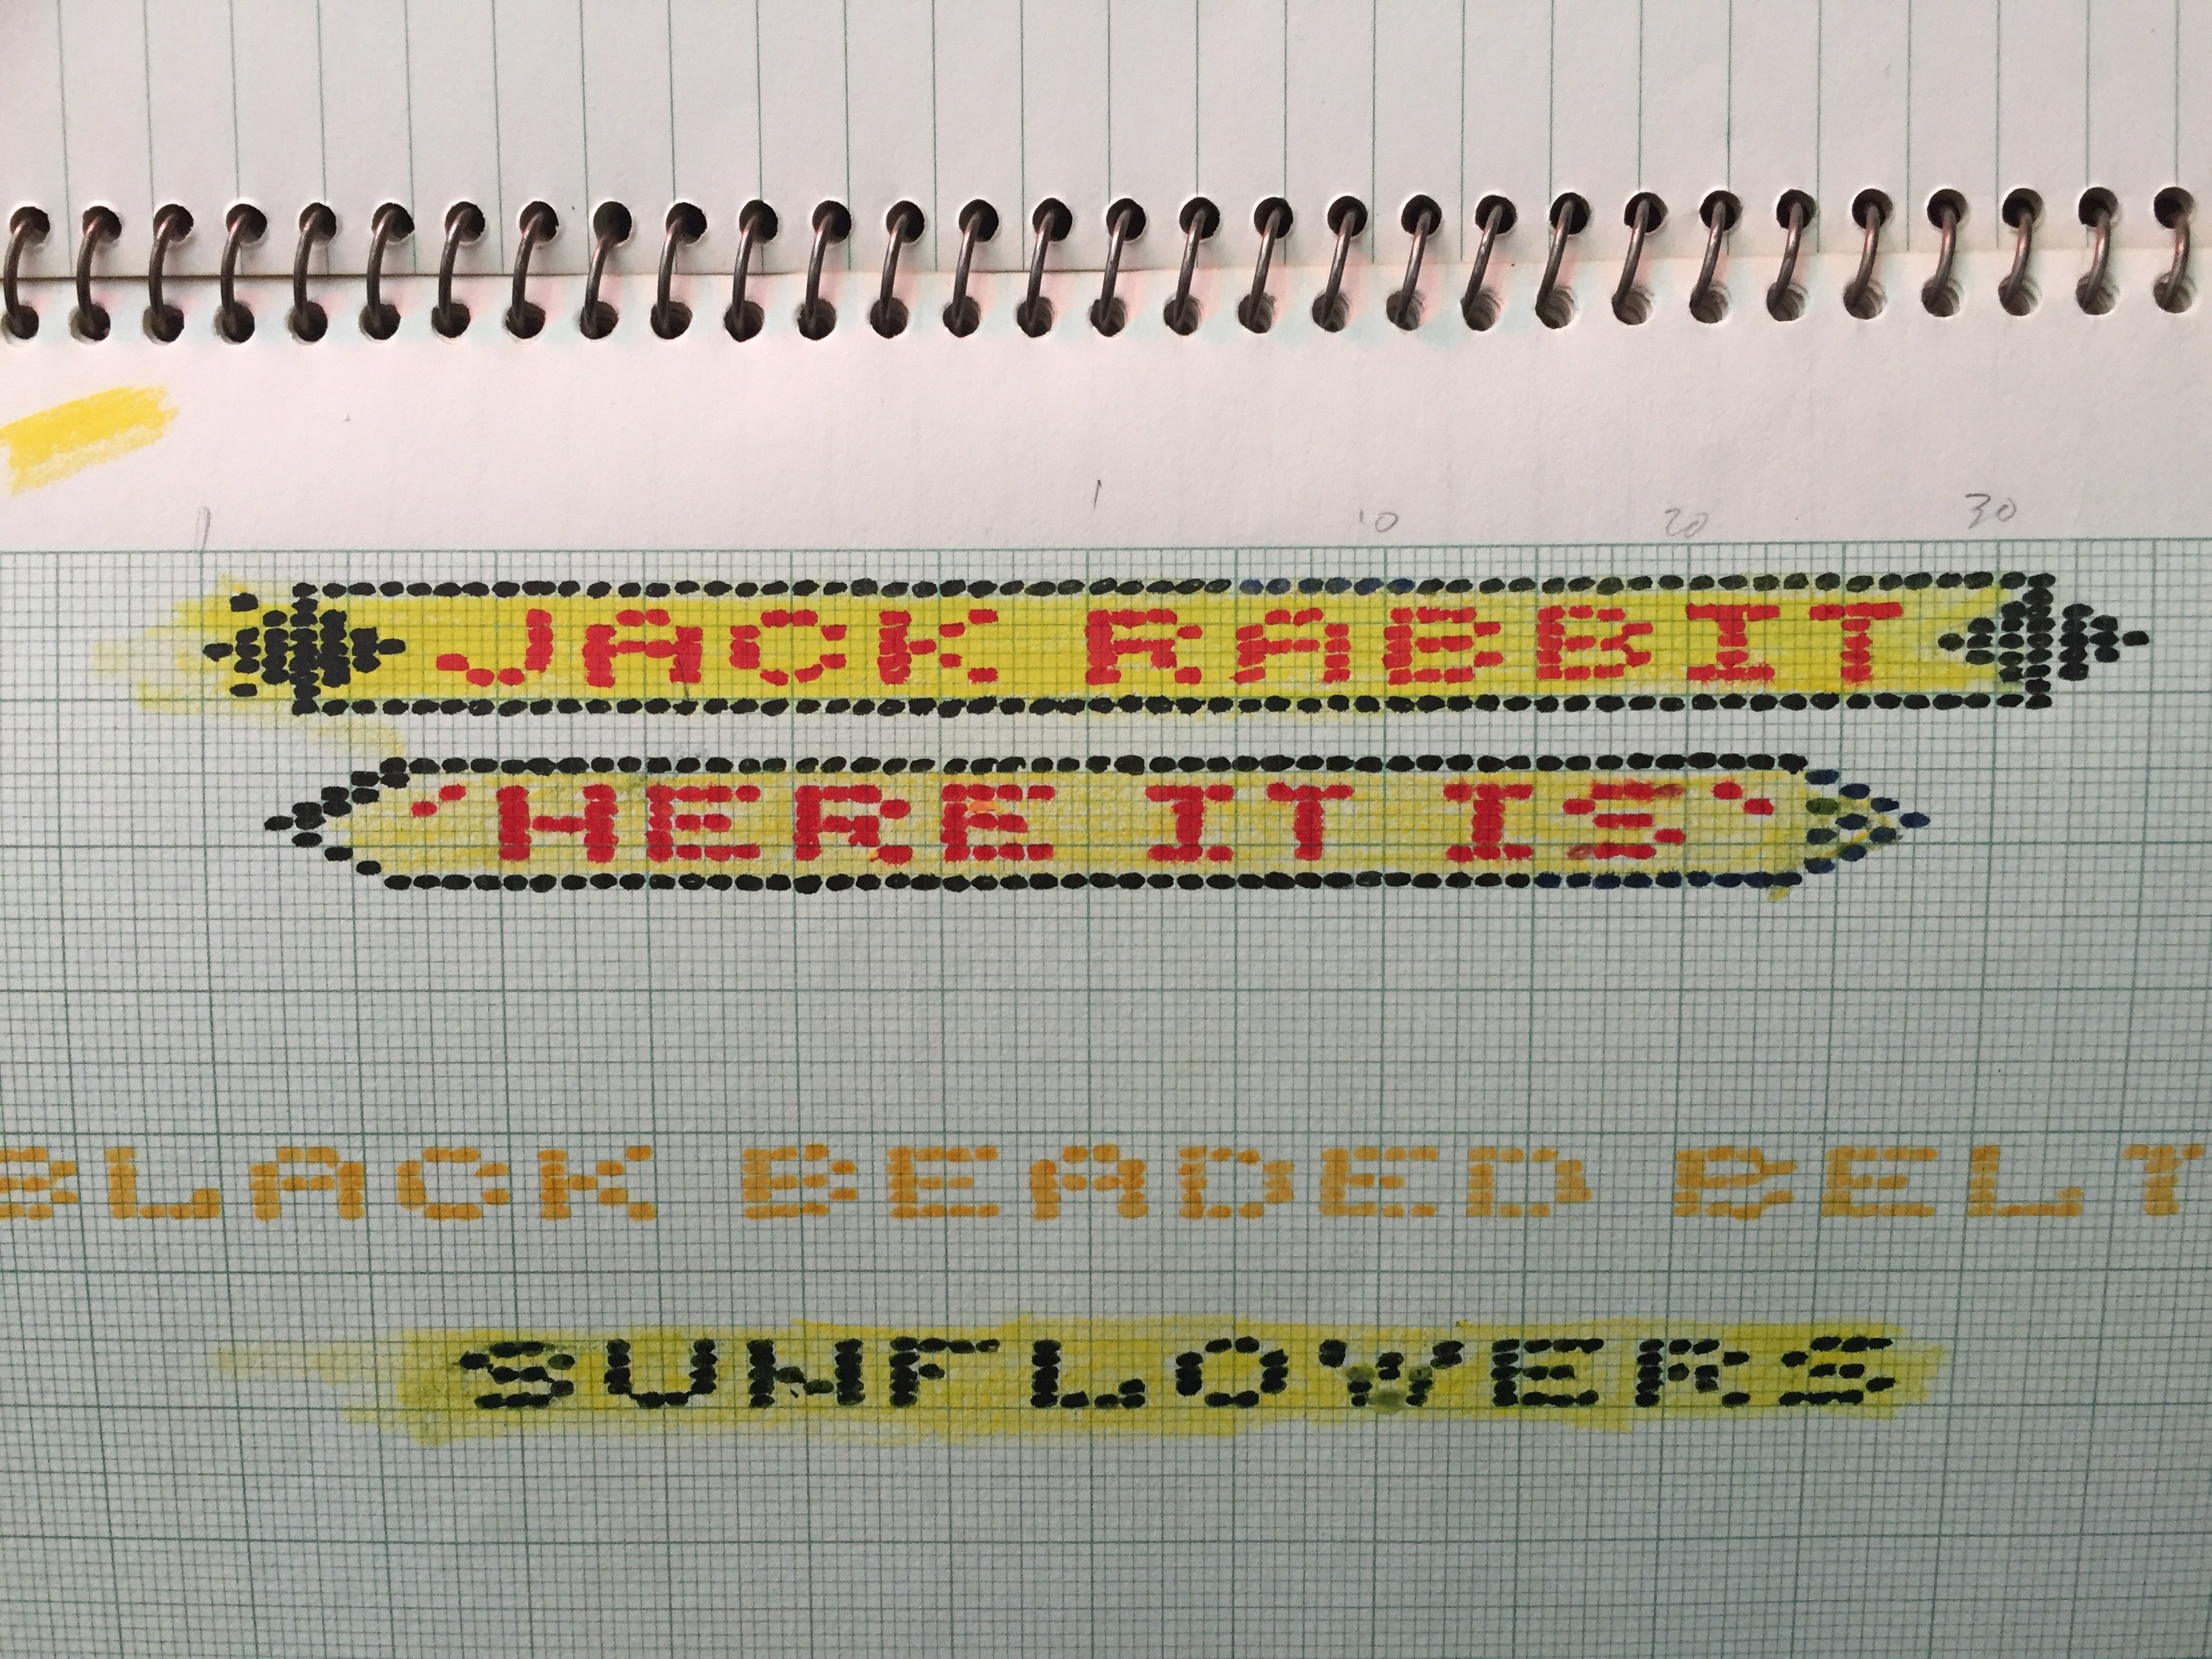 1 1 10 20 30
JACK RABBIT
'HERE IT IS'
BLACK BEADED BELT
SUNFLOWERS